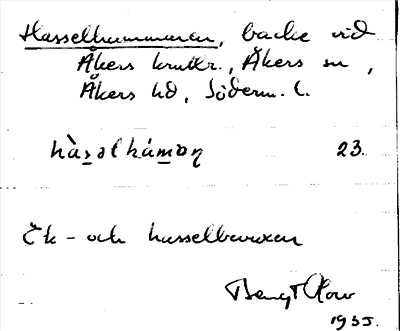 Hasselhummaren, backe vid
Åkers krutbr., Åkers sn,
Åkers hd, Söderm. l.
hàs̲əlhám̲ən 23.
Ek- och hasselbevuxen
Bengt
1935.